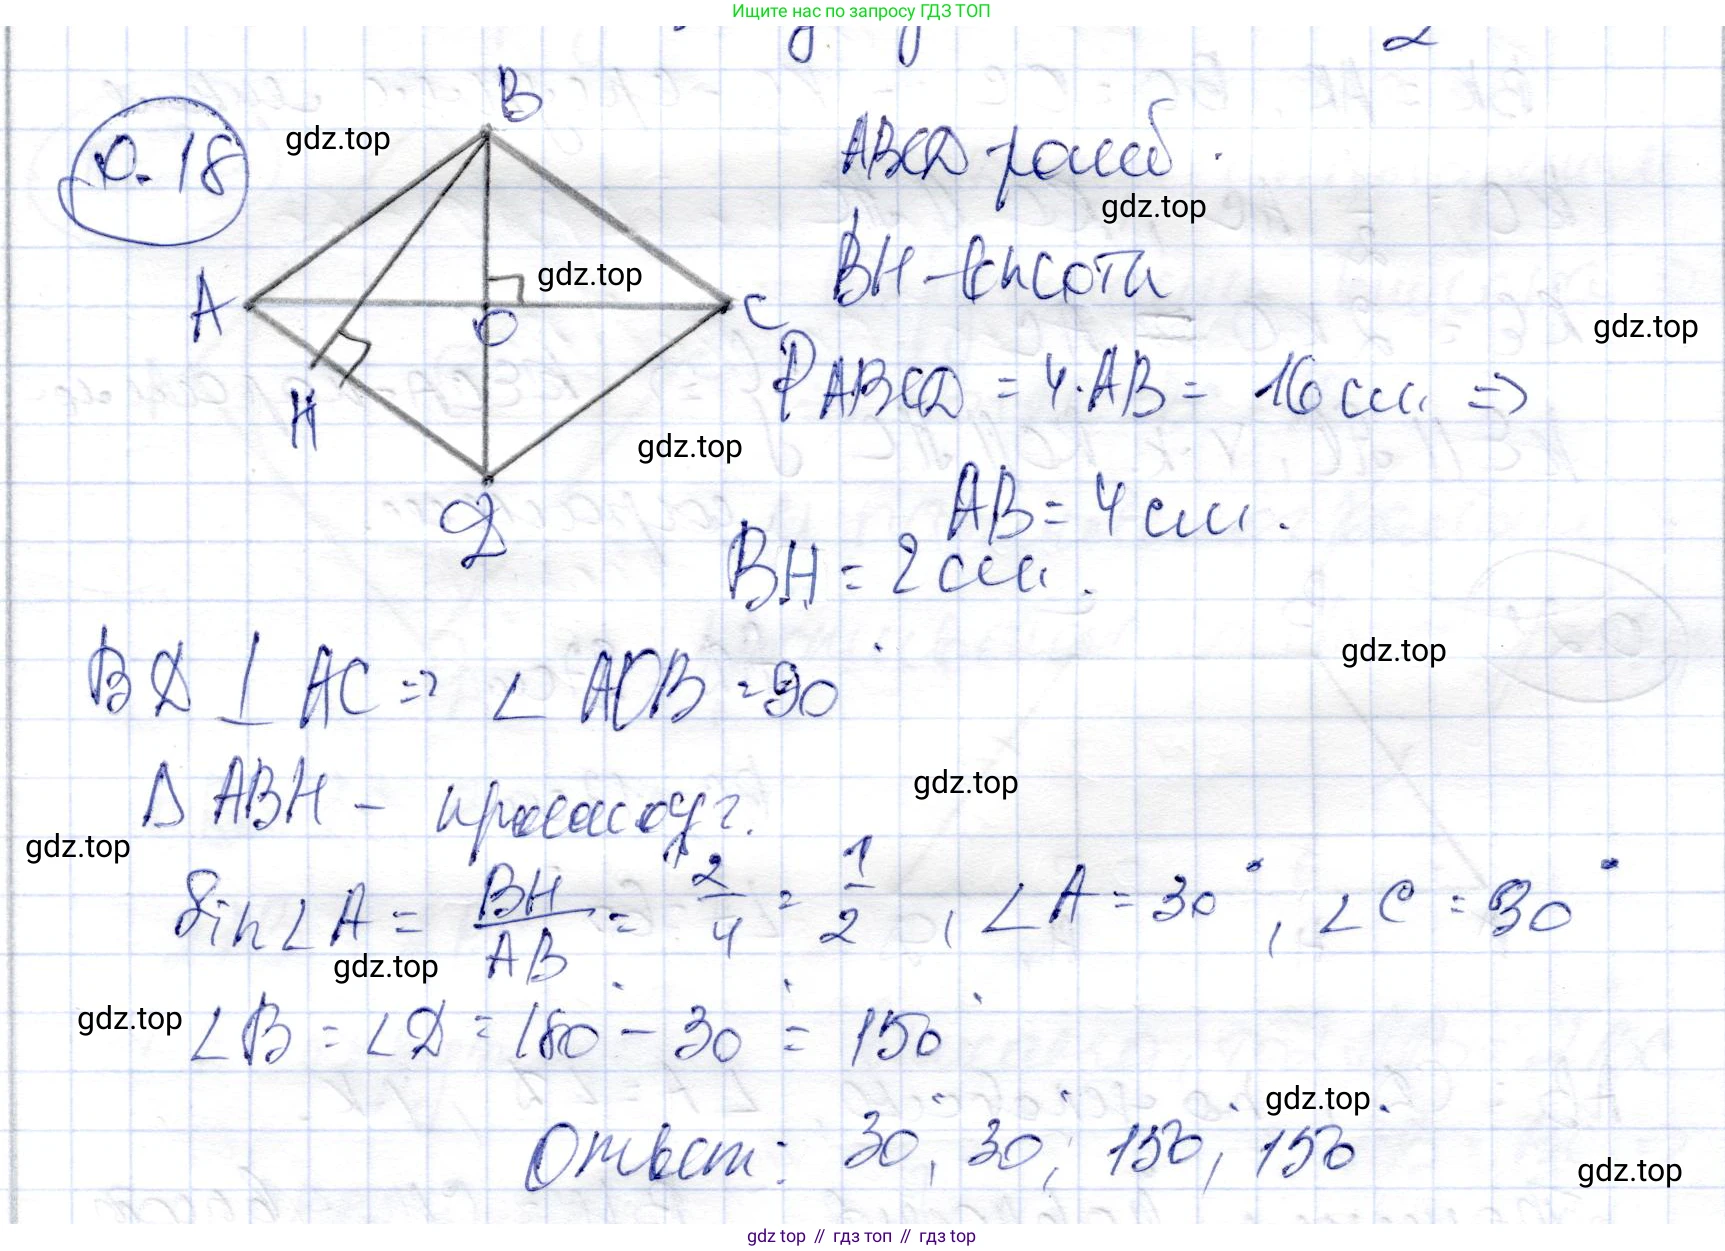 Ищите нас по запросу ГДЗ ТОП
0.18
gdz.top
B
A
O
C
H
D
gdz.top
gdz.top
ABCD ромб.
gdz.top
BH - высота
gdz.top
P ABCD = 4·AB = 16 см. =>
AB = 4 см.
BH = 2 см.
BD ⊥ AC => ∠ AOB = 90°
gdz.top
Δ ABH - прямоуг.
gdz.top
gdz.top
Sin∠A = BH/AB = 2/4 = 1/2, ∠A = 30°, ∠C = 30°
gdz.top
gdz.top
∠B = ∠D = 180° - 30° = 150°
gdz.top
Ответ: 30°, 30°, 150°, 150°
gdz.top
gdz.top // гдз топ // gdz top